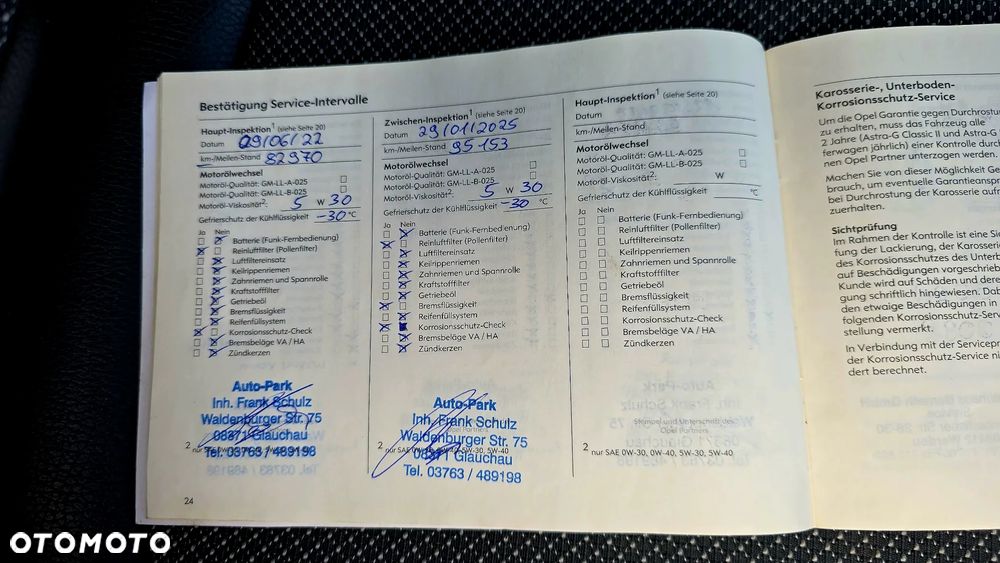 Bestätigung Service-Intervalle
Haupt-Inspektion¹ (siehe Seite 20)
Datum 09/06/22
km-/Meilen-Stand 82970
Motorölwechsel
Motoröl-Qualität: GM-LL-A-025 ☐
Motoröl-Qualität: GM-LL-B-025 ☐
Motoröl-Viskosität²: 5 W 30
Gefrierschutz der Kühlflüssigkeit -30 °C
Ja Nein
Batterie (Funk-Fernbedienung)
Reinluftfilter (Pollenfilter)
Luftfiltereinsatz
Keilrippenriemen
Zahnriemen und Spannrolle
Kraftstofffilter
Getriebeöl
Bremsflüssigkeit
Reifenfüllsystem
Korrosionsschutz-Check
Bremsbeläge VA / HA
Zündkerzen
Auto-Park
Inh. Frank Schulz
Waldenburger Str. 75
08371 Glauchau
Tel. 03763 / 489198
24
Zwischen-Inspektion¹ (siehe Seite 20)
Datum 29/01/2025
km-/Meilen-Stand 95153
Motorölwechsel
Motoröl-Qualität: GM-LL-A-025 ☐
Motoröl-Qualität: GM-LL-B-025 ☐
Motoröl-Viskosität²: 5 W 30
Gefrierschutz der Kühlflüssigkeit -30 °C
Ja Nein
Batterie (Funk-Fernbedienung)
Reinluftfilter (Pollenfilter)
Luftfiltereinsatz
Keilrippenriemen
Zahnriemen und Spannrolle
Kraftstofffilter
Getriebeöl
Bremsflüssigkeit
Reifenfüllsystem
Korrosionsschutz-Check
Bremsbeläge VA / HA
Zündkerzen
Auto-Park
Inh. Frank Schulz
Waldenburger Str. 75
08371 Glauchau
Tel. 03763 / 489198
Haupt-Inspektion¹ (siehe Seite 20)
Datum
km-/Meilen-Stand
Motorölwechsel
Motoröl-Qualität: GM-LL-A-025 ☐
Motoröl-Qualität: GM-LL-B-025 ☐
Motoröl-Viskosität²: W
Gefrierschutz der Kühlflüssigkeit °C
Ja Nein
Batterie (Funk-Fernbedienung)
Reinluftfilter (Pollenfilter)
Luftfiltereinsatz
Keilrippenriemen
Zahnriemen und Spannrolle
Kraftstofffilter
Getriebeöl
Bremsflüssigkeit
Reifenfüllsystem
Korrosionsschutz-Check
Bremsbeläge VA / HA
Zündkerzen
Stempel und Unterschrift des
Opel Partners
² nur SAE 0W-30, 0W-40, 5W-30, 5W-40
Karosserie-, Unterboden-
Korrosionsschutz-Service
Um die Opel Garantie gegen Durchrostu
zu erhalten, muss das Fahrzeug alle
2 Jahre (Astra-G Classic II und Astra-G
ferwagen jährlich) einer Kontrolle durch
nen Opel Partner unterzogen werden.
Machen Sie von dieser Möglichkeit Ge
brauch, um eventuelle Garantieansp
bei Durchrostung der Karosserie aufr
zuerhalten.
Sichtprüfung
Im Rahmen der Kontrolle ist eine Si
fung der Lackierung, der Karosseri
des Korrosionsschutzes des Unterb
auf Beschädigungen vorgeschrieb
Kunde wird auf Schäden und dere
gung schriftlich hingewiesen. Dab
den etwaige Beschädigungen in
folgenden Korrosionsschutz-Serv
stellung vermerkt.
In Verbindung mit der Servicepr
der Korrosionsschutz-Service ni
dert berechnet.
OTOMOTO